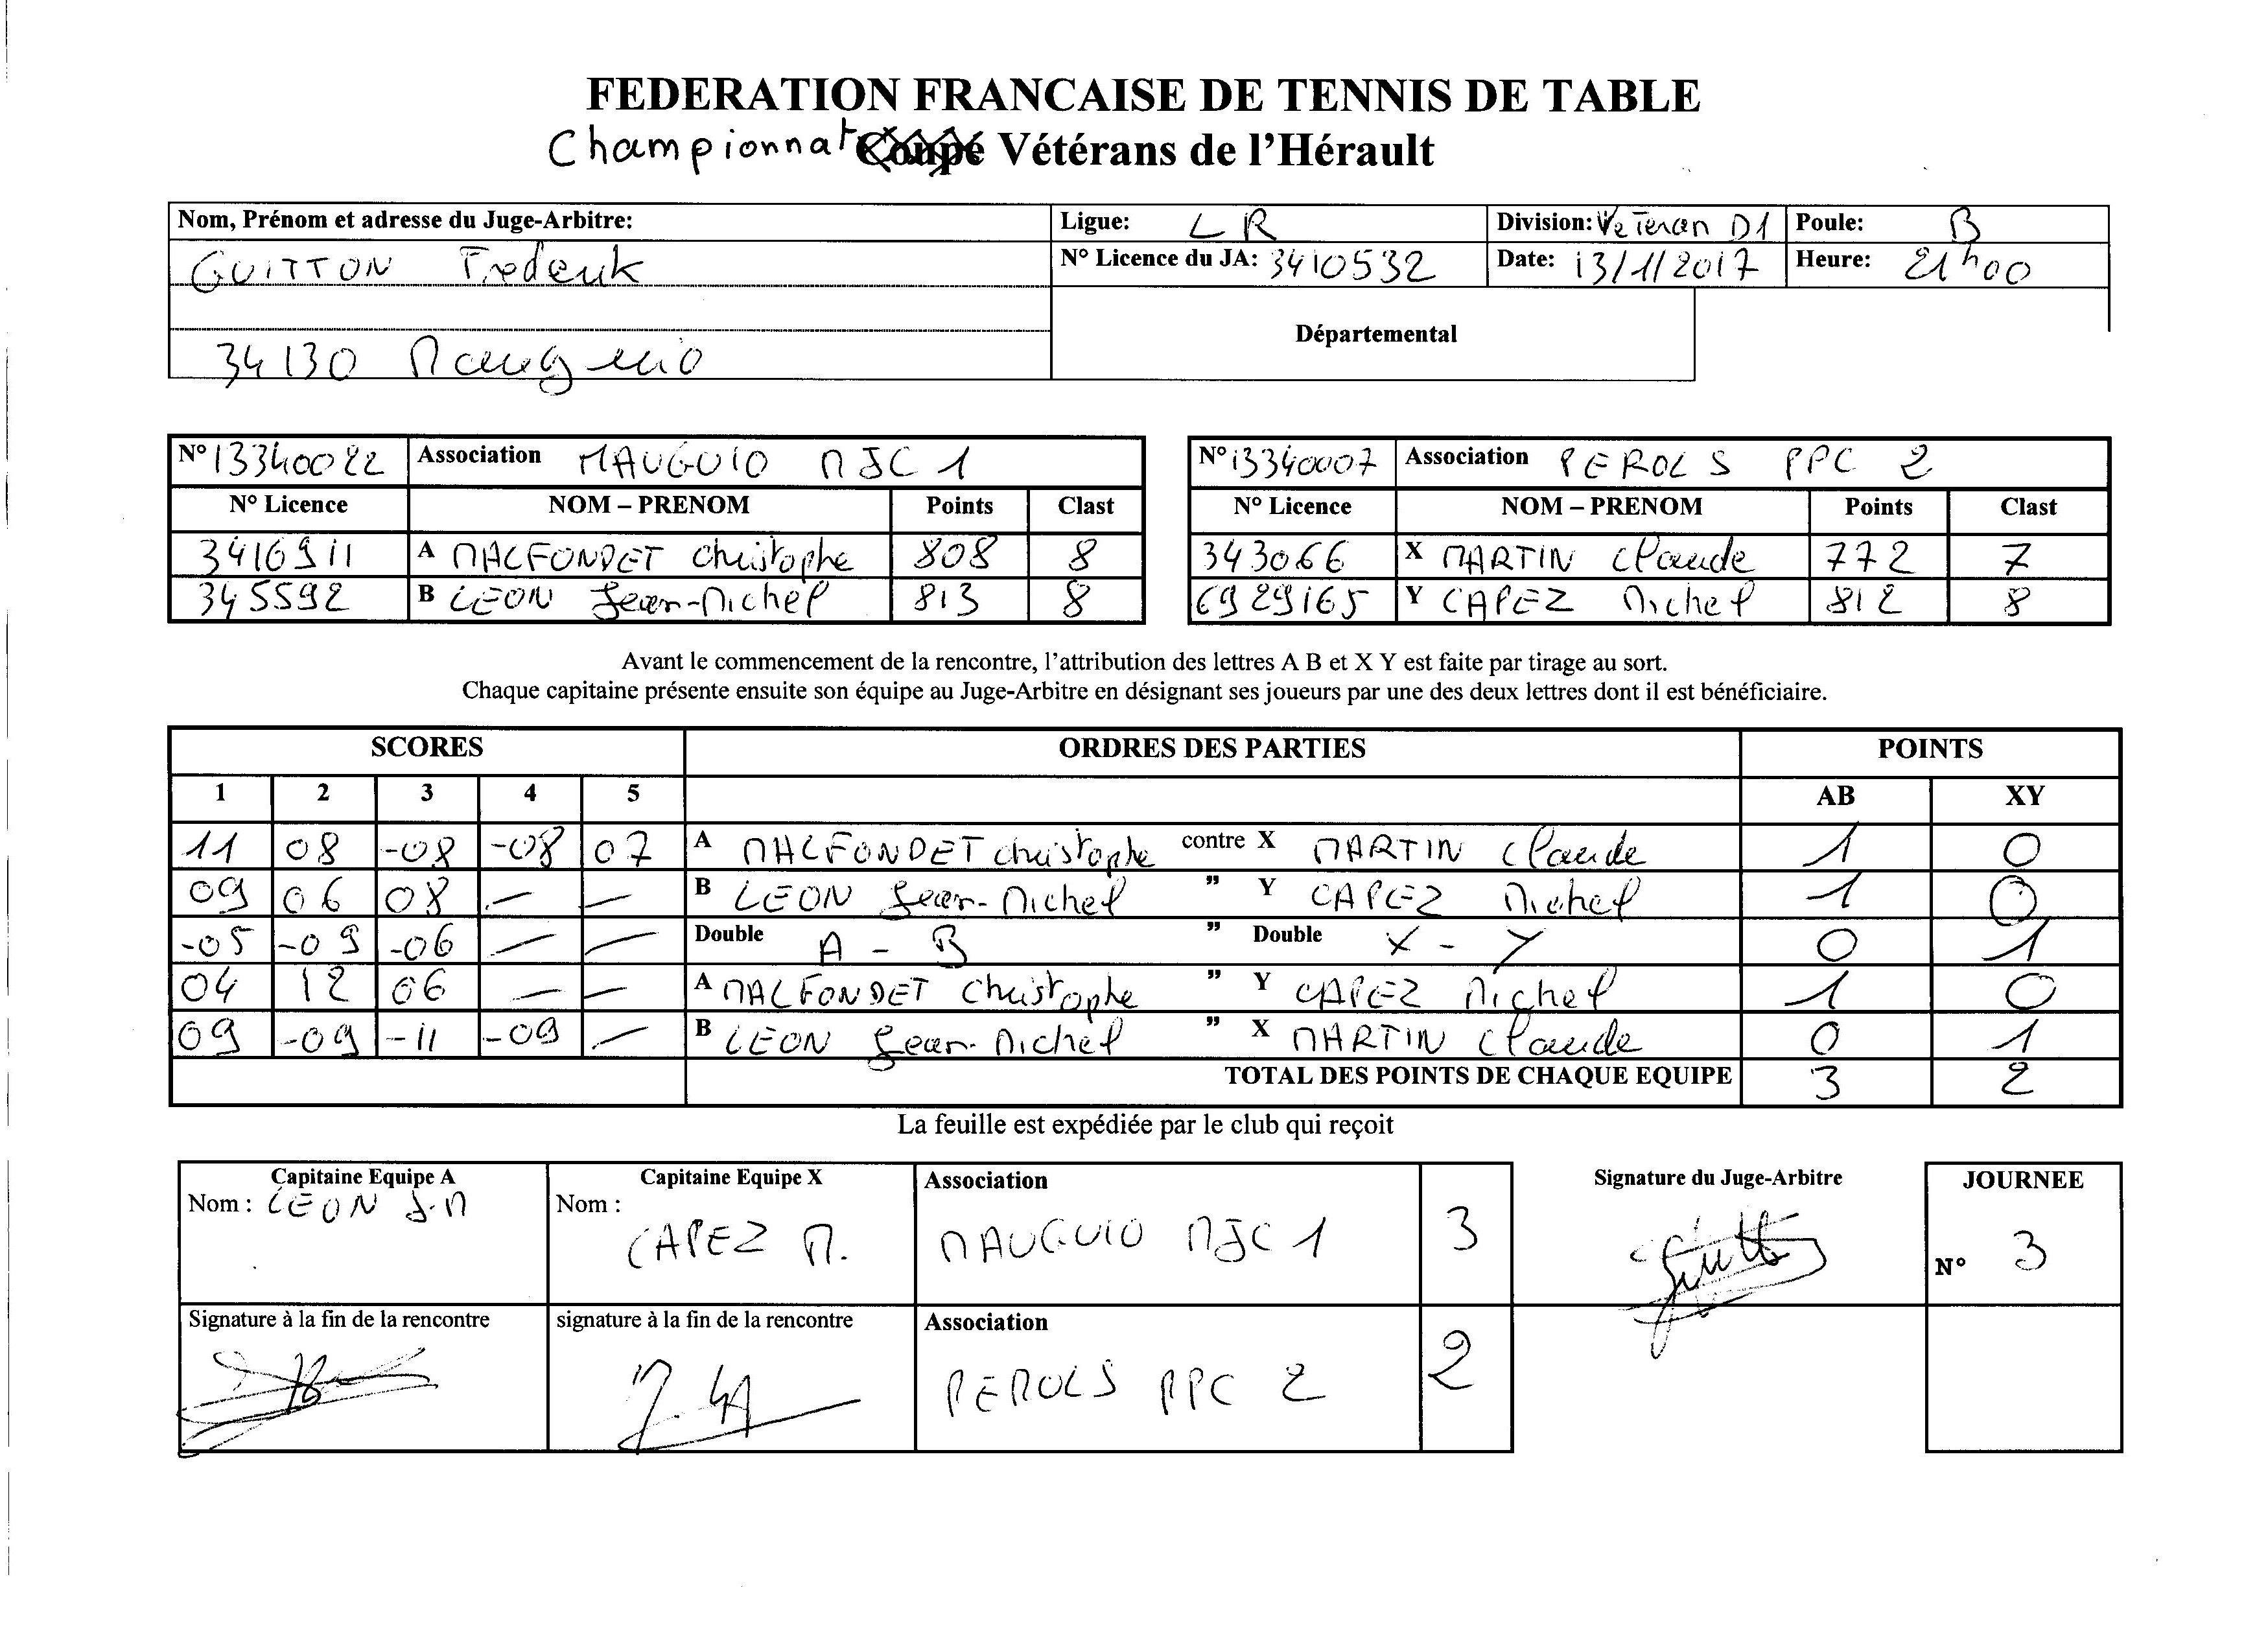 FEDERATION FRANCAISE DE TENNIS DE TABLE
Championnat Coupe Vétérans de l'Hérault
Nom, Prénom et adresse du Juge-Arbitre: Ligue: LR Division: Veteran D1 Poule: B
GUITTON Frederik N° Licence du JA: 3410532 Date: 13/1/2017 Heure: 21h00
Départemental
34130 Mauguio
N° 13340022 Association MAUGUIO MJC 1 N° 13340007 Association PEROLS PPC 2
N° Licence NOM – PRENOM Points Clast N° Licence NOM – PRENOM Points Clast
3416911 A MALFONDET Christophe 808 8 343066 X MARTIN Claude 772 7
345592 B LEON Jean-Michel 813 8 6929165 Y CAPEZ Michel 812 8
Avant le commencement de la rencontre, l'attribution des lettres A B et X Y est faite par tirage au sort.
Chaque capitaine présente ensuite son équipe au Juge-Arbitre en désignant ses joueurs par une des deux lettres dont il est bénéficiaire.
SCORES ORDRES DES PARTIES POINTS
1 2 3 4 5 AB XY
11 08 -08 -08 07 A MALFONDET Christophe contre X MARTIN Claude 1 0
09 06 08 — — B LEON Jean-Michel " Y CAPEZ Michel 1 0
-05 -09 -06 — — Double A - B " Double X - Y 0 1
04 12 06 — — A MALFONDET Christophe " Y CAPEZ Michel 1 0
09 -09 -11 -09 — B LEON Jean-Michel " X MARTIN Claude 0 1
TOTAL DES POINTS DE CHAQUE EQUIPE 3 2
La feuille est expédiée par le club qui reçoit
Capitaine Equipe A Capitaine Equipe X Association Signature du Juge-Arbitre JOURNEE
Nom : LEON J-M Nom : CAPEZ M. MAUGUIO MJC 1 3 N° 3
Signature à la fin de la rencontre signature à la fin de la rencontre Association
PEROLS PPC 2 2